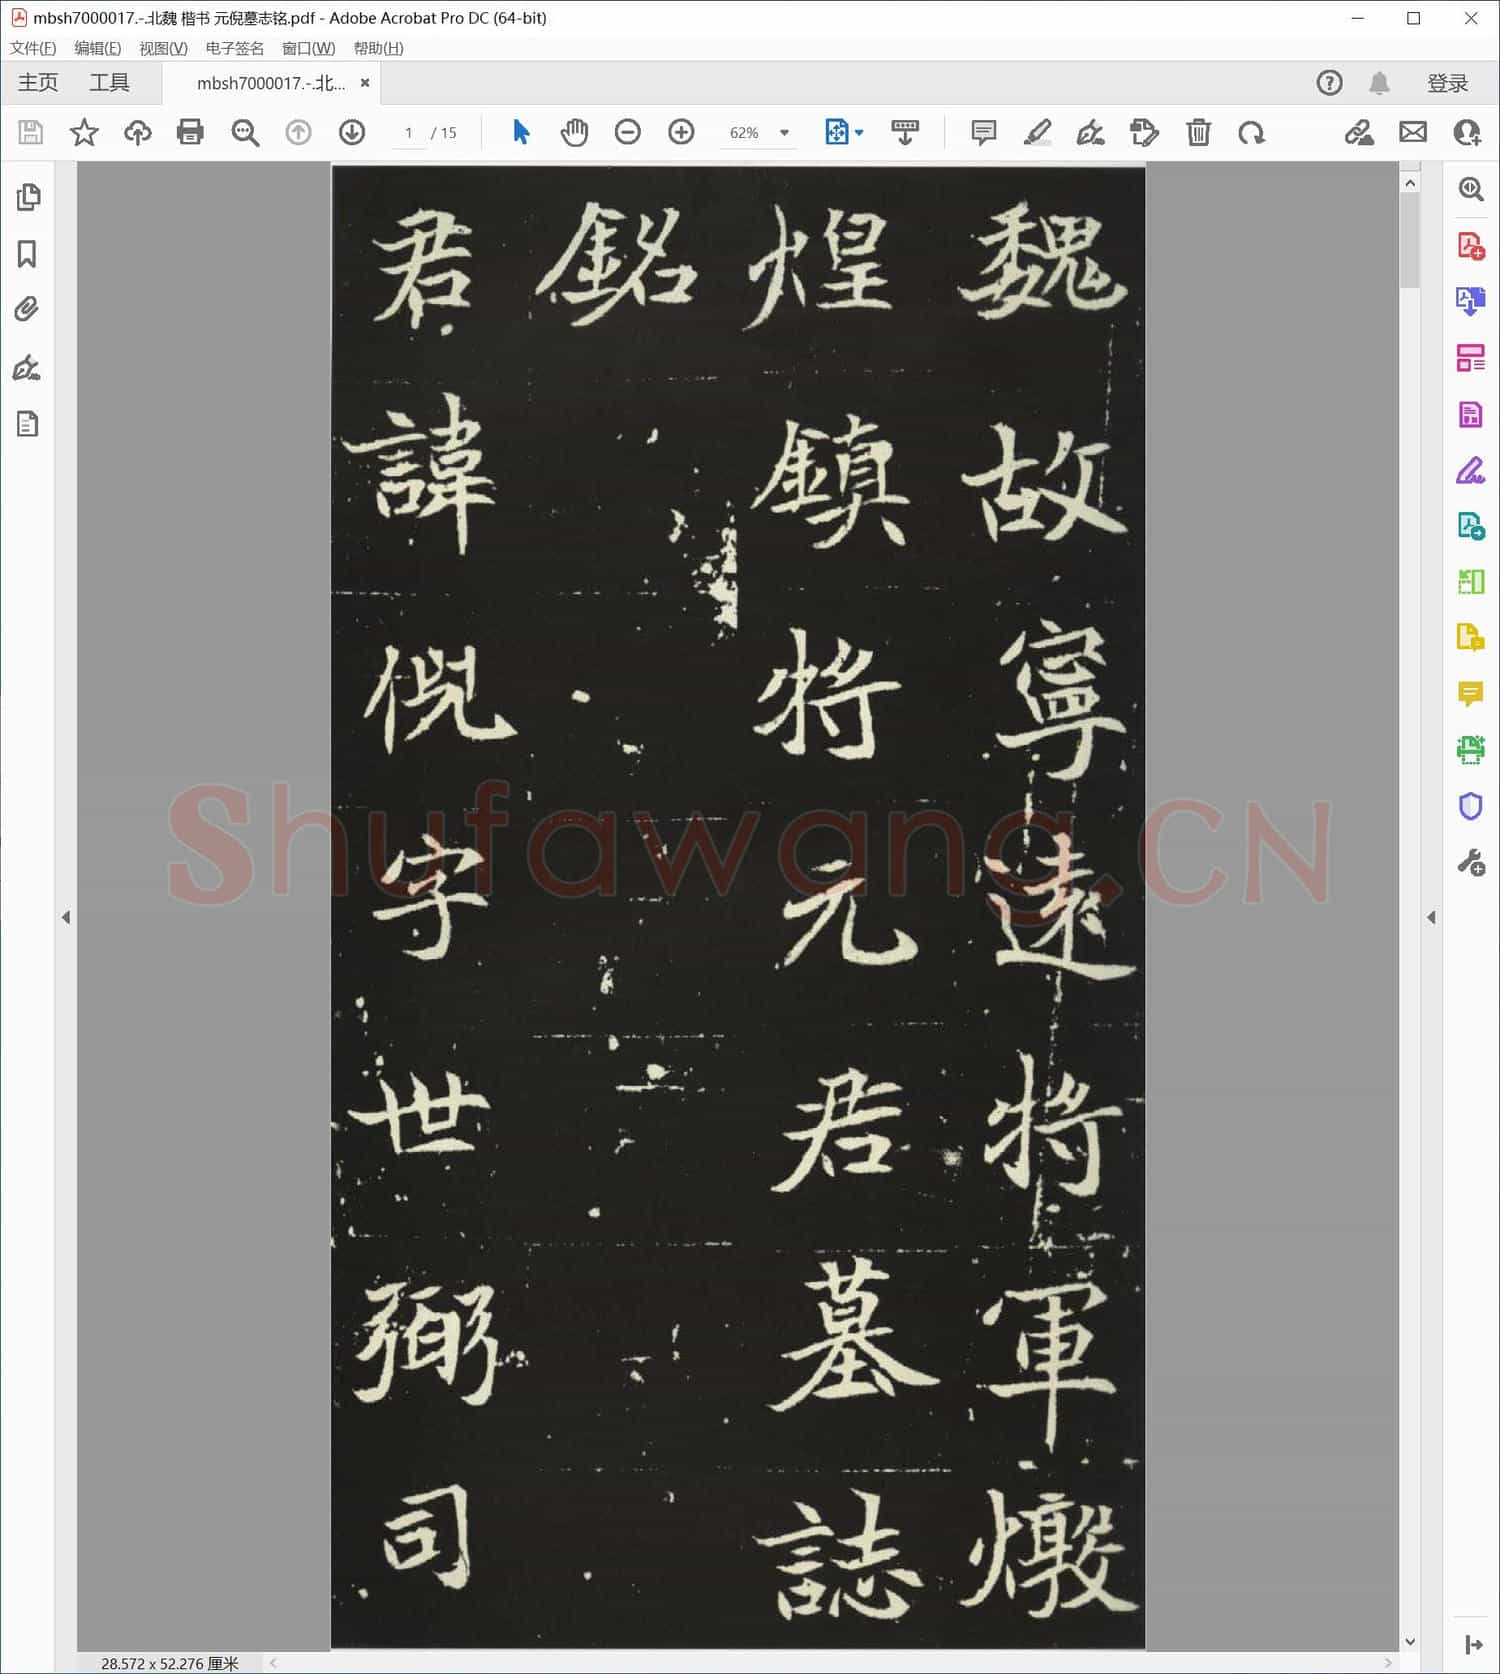 mbsh7000017.-.北魏 楷书 元倪墓志铭.pdf - Adobe Acrobat Pro DC (64-bit)
文件(F) 编辑(E) 视图(V) 电子签名 窗口(W) 帮助(H)
主页 工具 mbsh7000017.-.北... × 登录
1 / 15 62%
魏故寧遠將軍燉
煌鎮將元君墓誌
銘
君諱倪字世弼司
Shufawang.CN
28.572 x 52.276 厘米